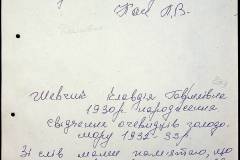 Кай Л.В.
Шевчик Клавдія Гаврилівна
1930р. народження
свідчення очевидців голодо-
мору 1932-33р.
Зі слів мами пам'ятаю, що